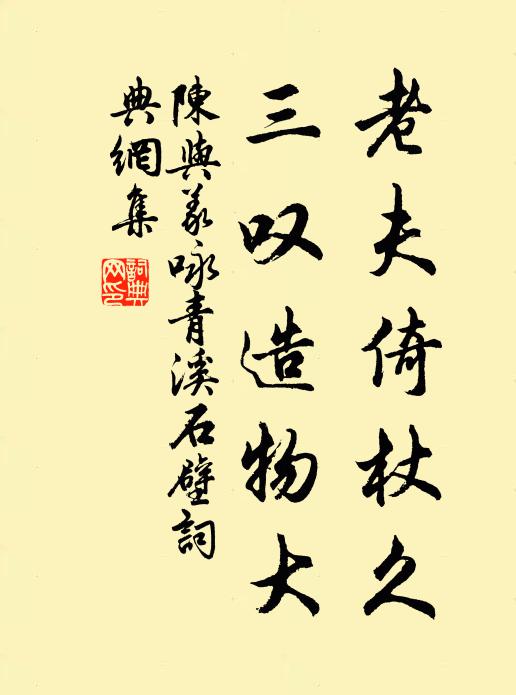 老夫倚杖久
三叹造物大
陳與義咏青溪石壁詞
典網集
詞典
网印